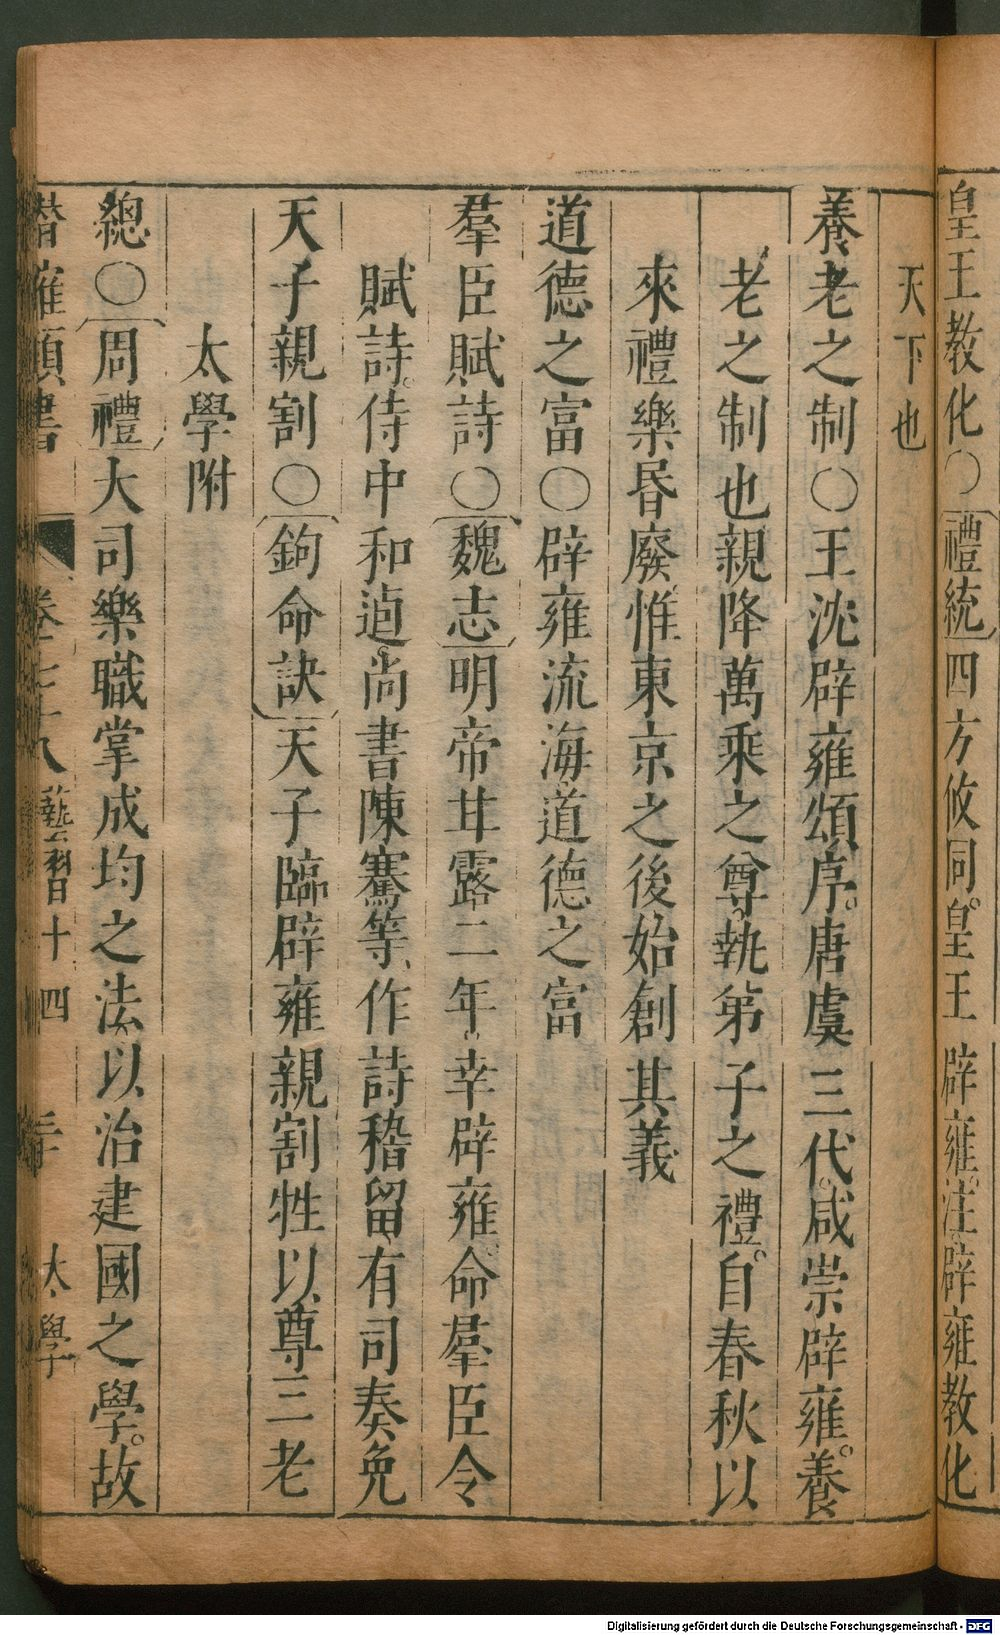 皇王教化○禮統四方攸同皇王辟雍注辟雍教化
天下也
養老之制○王沈辟雍頌序唐虞三代咸崇辟雍養
老之制也親降萬乘之尊執弟子之禮自春秋以
來禮樂昬廢惟東京之後始創其義
道德之富○辟雍流海道德之富
羣臣賦詩○魏志明帝甘露二年幸辟雍命羣臣令
賦詩侍中和逌尚書陳騫等作詩稽留有司奏免
天子親割○鉤命訣天子臨辟雍親割牲以尊三老
太學附
總○周禮大司樂職掌成均之法以治建國之學故
潛確類書 卷七十八 藝習十四 三十 太學
Digitalisierung gefördert durch die Deutsche Forschungsgemeinschaft - DFG